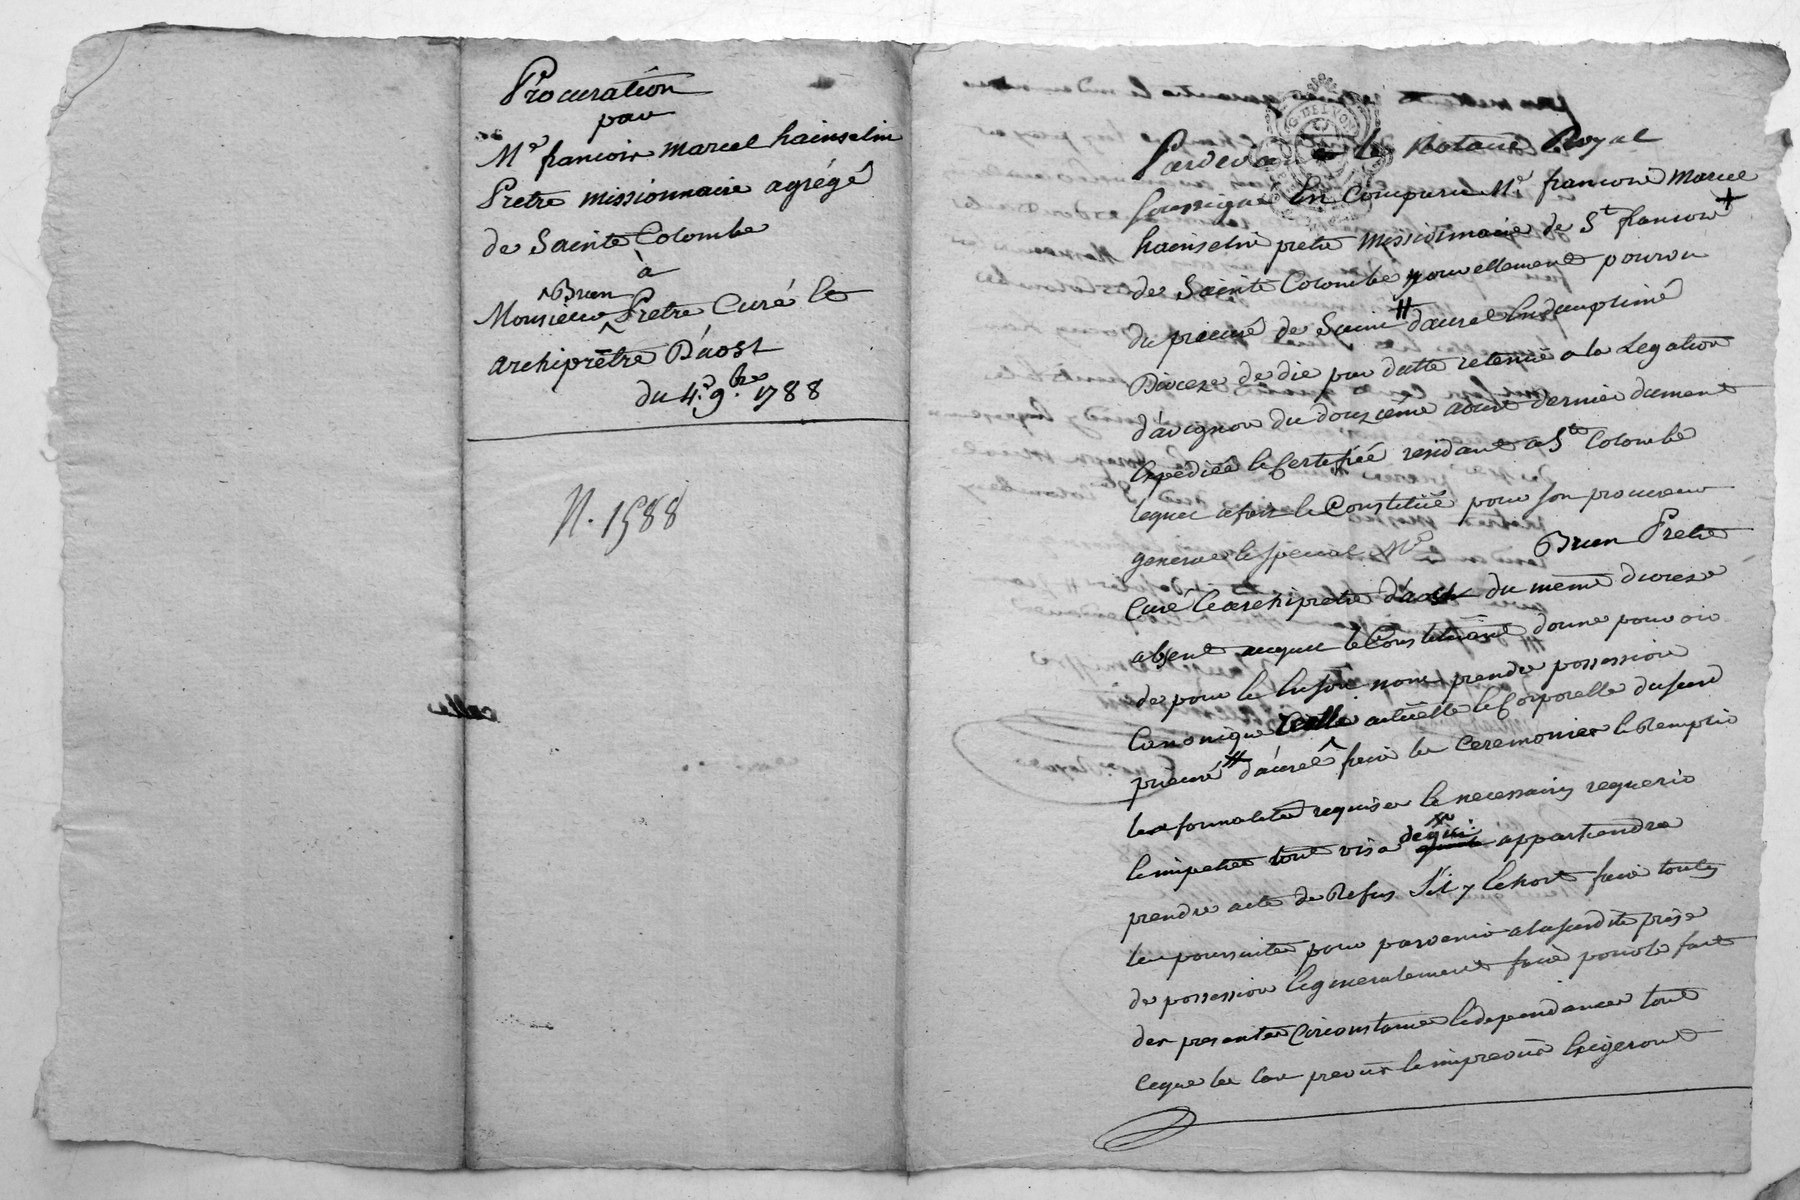 Procuration
par
Me francois marcel hainselin
Pretre missionnaire agrégé
de Sainte Colombe
à
Brun
Monsieur Pretre Curé et
archiprêtre D'aost
du 4e 9bre 1788
N. 1588
Pardevant le Notaire Royal
soussigné En Comparu Me francois Marcel
hainselin pretre missionnaire de St francois +
de Sainte Colombe nouvellement pourvu
du prieuré de Saint # daurel En dauphiné
Diocese de die par datte retenue a la Legation
d'avignon du douzieme aout dernier dument
Expediée et Certifiée residant a Ste Colombe
lequel a fait et Constitué pour son procureur
general et special Me Brun Pretre
Curé et archipretre d'aost du même diocese
absent auquel le Constituant donne pouvoir
de pour et En son nom prendre possession
Canonique reelle actuelle et Corporelle dususd
prieuré # d'aurel faire les Ceremonies et Remplir
les formalités requises et necessaires requerir
et impetrer tout visa de qui appartiendra
prendre acte de Refus s'il y Echoit faire toutes
les poursuites pour parvenir a la susdite prise
de possession et generalement faire pour le fait
des presentes Circonstances et dependances tout
ce que les Cas prevus et imprevus Exigeront